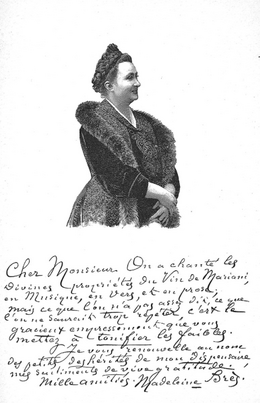 Cher Monsieur On a chanté les
Divines propriétés du Vin de Mariani,
en Musique, en vers, et en prose,
mais ce que l'on n'a pas assez dit, ce que
l'on ne saurait trop répéter c'est le
gracieux empressement que vous
mettez à tonifier les faibles.
Je vous renouvelle au nom
des petits déshérités de mon dispensaire
mes sentiments de vive gratitude.
Mille amitiés. Madeleine Brès.